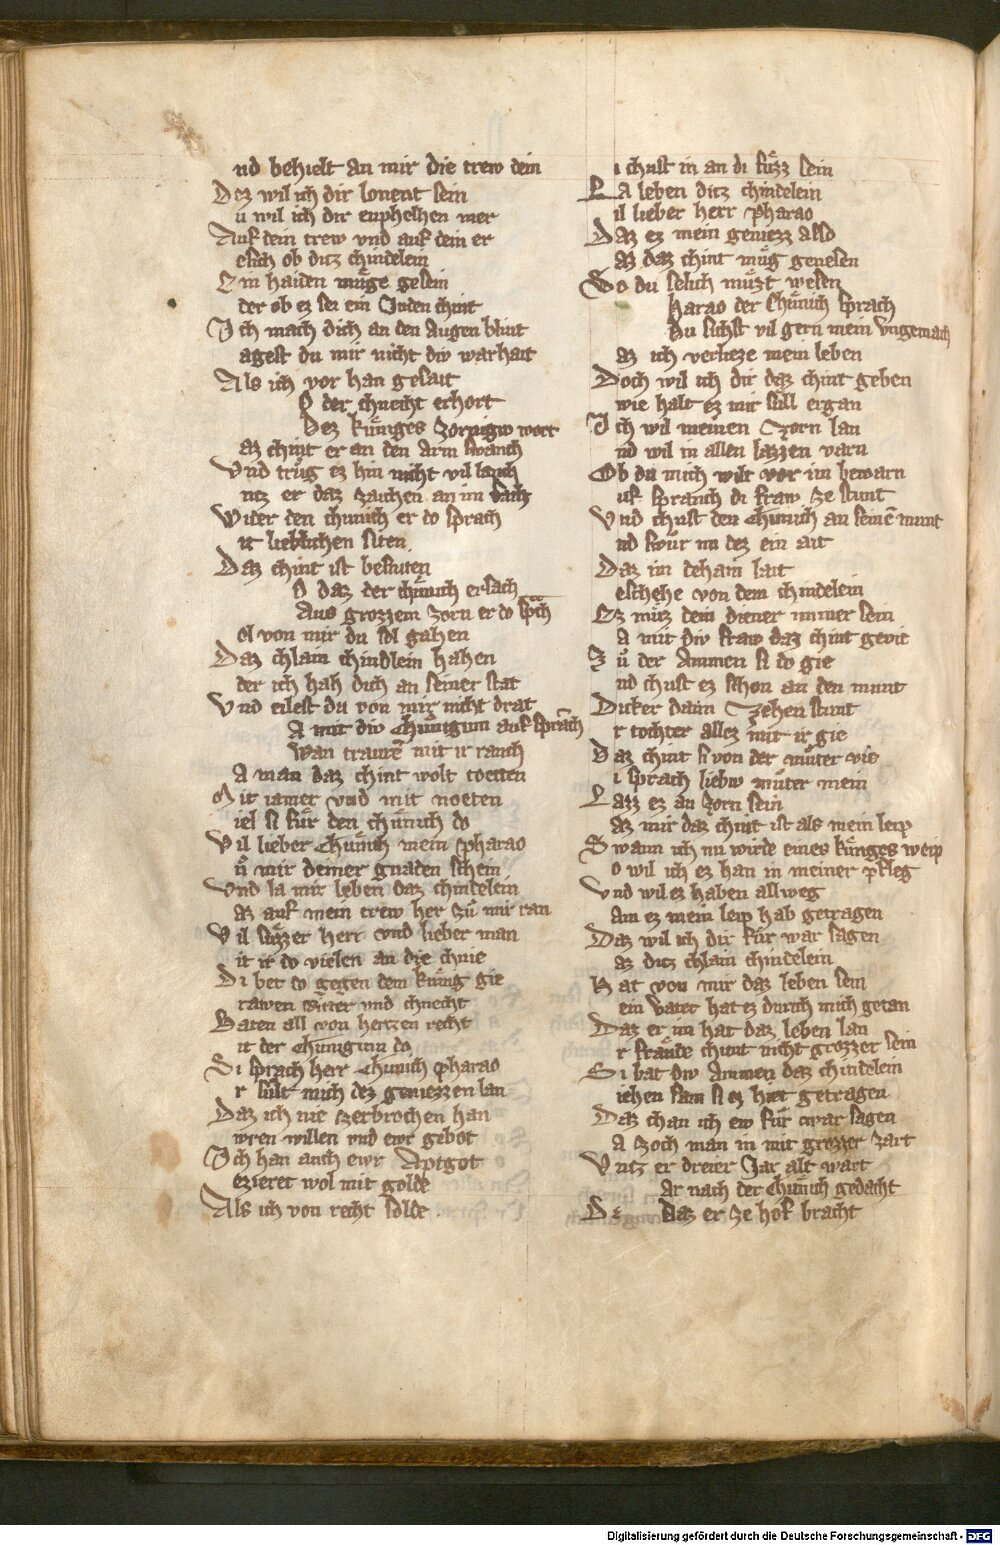 nd behielt an mir die trew dein
Dez wil ich dir lonent sein
u wil ich dir enphelhen mer
Auf dein trew vnd auf dein er
esich ob ditz chindelein
Ein haiden muͤge gesein
der ob ez sei ein Juden chint
Ich mach dich an den augen blint
agest du mir nicht div warhait
Als ich vor han gesait
O der chnecht erhort
Dez kuͤniges zornigiv wort
az chint er an den arm swanch
Vnd trůg ez hin nicht vil lanch
ntz er daz zaichen an im sach
Wider den chunich er do sprach
it lieblichen siten
Daz chint ist besniten
O daz der chuͤnich ersach
Aus grozzem zorn er do sp̄ch
ol von mir du sol gahen
Daz chlain chindlein hahen
der ich hah dich an seiner stat
Vnd eilest du von mir nicht drat
A mit div chuͤniginn auf sprāch
Wan trawrē mit ir ranch
A man daz chint wolt toetten
Mit iamer vnd mit noeten
iel si fuͤr den chuͤnich do
Vil lieber chuͤnich mein pharao
ů mir deiner gnaden schein
Vnd la mir leben daz chindelein
az auf mein trew her zů mir ran
Vil suͤzzer herr vnd lieber man
it ir do vielen an die chnie
Di bet do gegen dem kuͤnig gie
rawen Ritter vnd chnecht
Baten all von hertzen recht
it der chuniginn do
Si sprach herr chunich pharao
r suͤlt mich dez geniezzen lan
Daz ich nie zerbrochen han
wren willen vnd ewr gebot
Ich han auch ewr Aptgot
ezieret wol mit golde
Als ich von recht solde
i chust in an di fuͤzz sein
La leben ditz chindelein
il lieber herr pharao
Daz ez mein geniezz also
az daz chint muͤg genesen
So du selich muͤzt wesen
harao der Chuͤnich sprach
Du sichst vil gern mein vngemach
az ich verlieze mein leben
Doch wil ich dir daz chint geben
wie halt ez mir suͤll ergan
Ich wil meinen zorn lan
nd wil in allen lazzen varn
Ob du mich wilt vor im bewarn
uf spranch di fraw ze stunt
Vnd chust den Chunich an seinē munt
nd swůr im dez ein ait
Daz im dehain lait
eschehe von dem chindelein
Ez můz dein diener immer sein
A mit div fraw daz chint gevie
Zů der Ammen si do gie
nd chust ez schon an den munt
Dicker dann zehen stunt
r tochter allez mit ir gie
Daz chint si von der můter vie
i sprach liebiv můter mein
Lazz ez an zorn sein
az mir daz chint ist als mein leip
Swann ich nu wirde eines kuͤnges weip
o wil ich ez han in meiner pfleg
Vnd wil ez haben allweg
am ez mein leip hab getragen
Daz wil ich dir fuͤr war sagen
az ditz chlain chindelein
Hat von mir daz leben sein
ein vater hat ez durch mich getan
Daz er im hat daz leben lan
r fraͤude chunt nicht grozzer sein
Si bat div Ammen daz chindelein
iehen sam si ez hiet getragen
Daz chan ich ew fuͤr war sagen
A zoch man in mit grozzer zart
Vntz er dreier Jar alt wart
ar nach der Chuͤnich gedacht
De daz er ze hof bracht
Digitalisierung gefördert durch die Deutsche Forschungsgemeinschaft - DFG